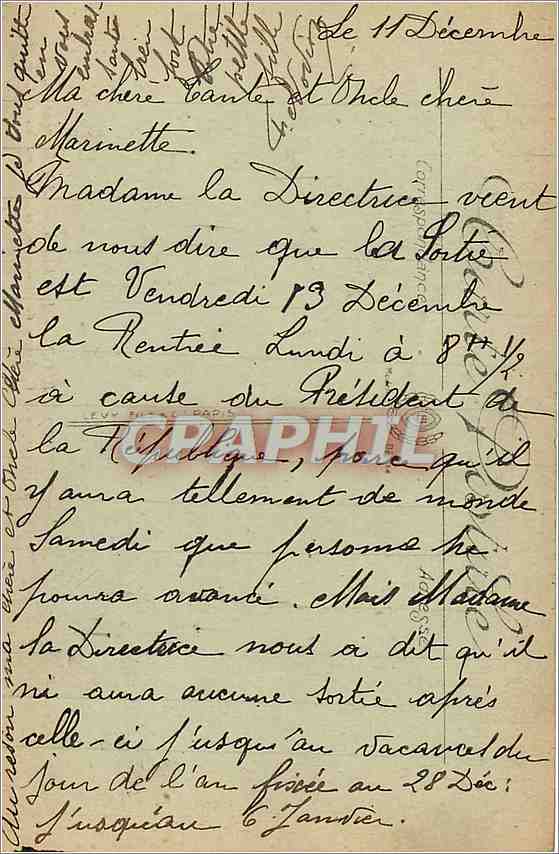 Le 11 Décembre
Ma chère Tante et Oncle chère
Marinette.
Madame la Directrice vient
de nous dire que la Sortie
est Vendredi 13 Décembre
la Rentrée Lundi à 8H 1/2
à cause du Président de
la République, parce qu'il
y aura tellement de monde
Samedi que personne ne
pourra avancé. Mais Madame
la Directrice nous a dit qu'il
ni aura aucune sortie après
celle-ci j'usqu'au vacances du
jour de l'an fixée au 28 Déc:
j'usqu'au 6 Janvier.
Aurevoir ma chère et Oncle chère Marinette je vous quitte
en
vous
embras
sant
bien
fort
Votre
petite
fille
Carte Postale
Correspondance
Adresse
LEVY FILS & Cie PARIS
CPAPHIL